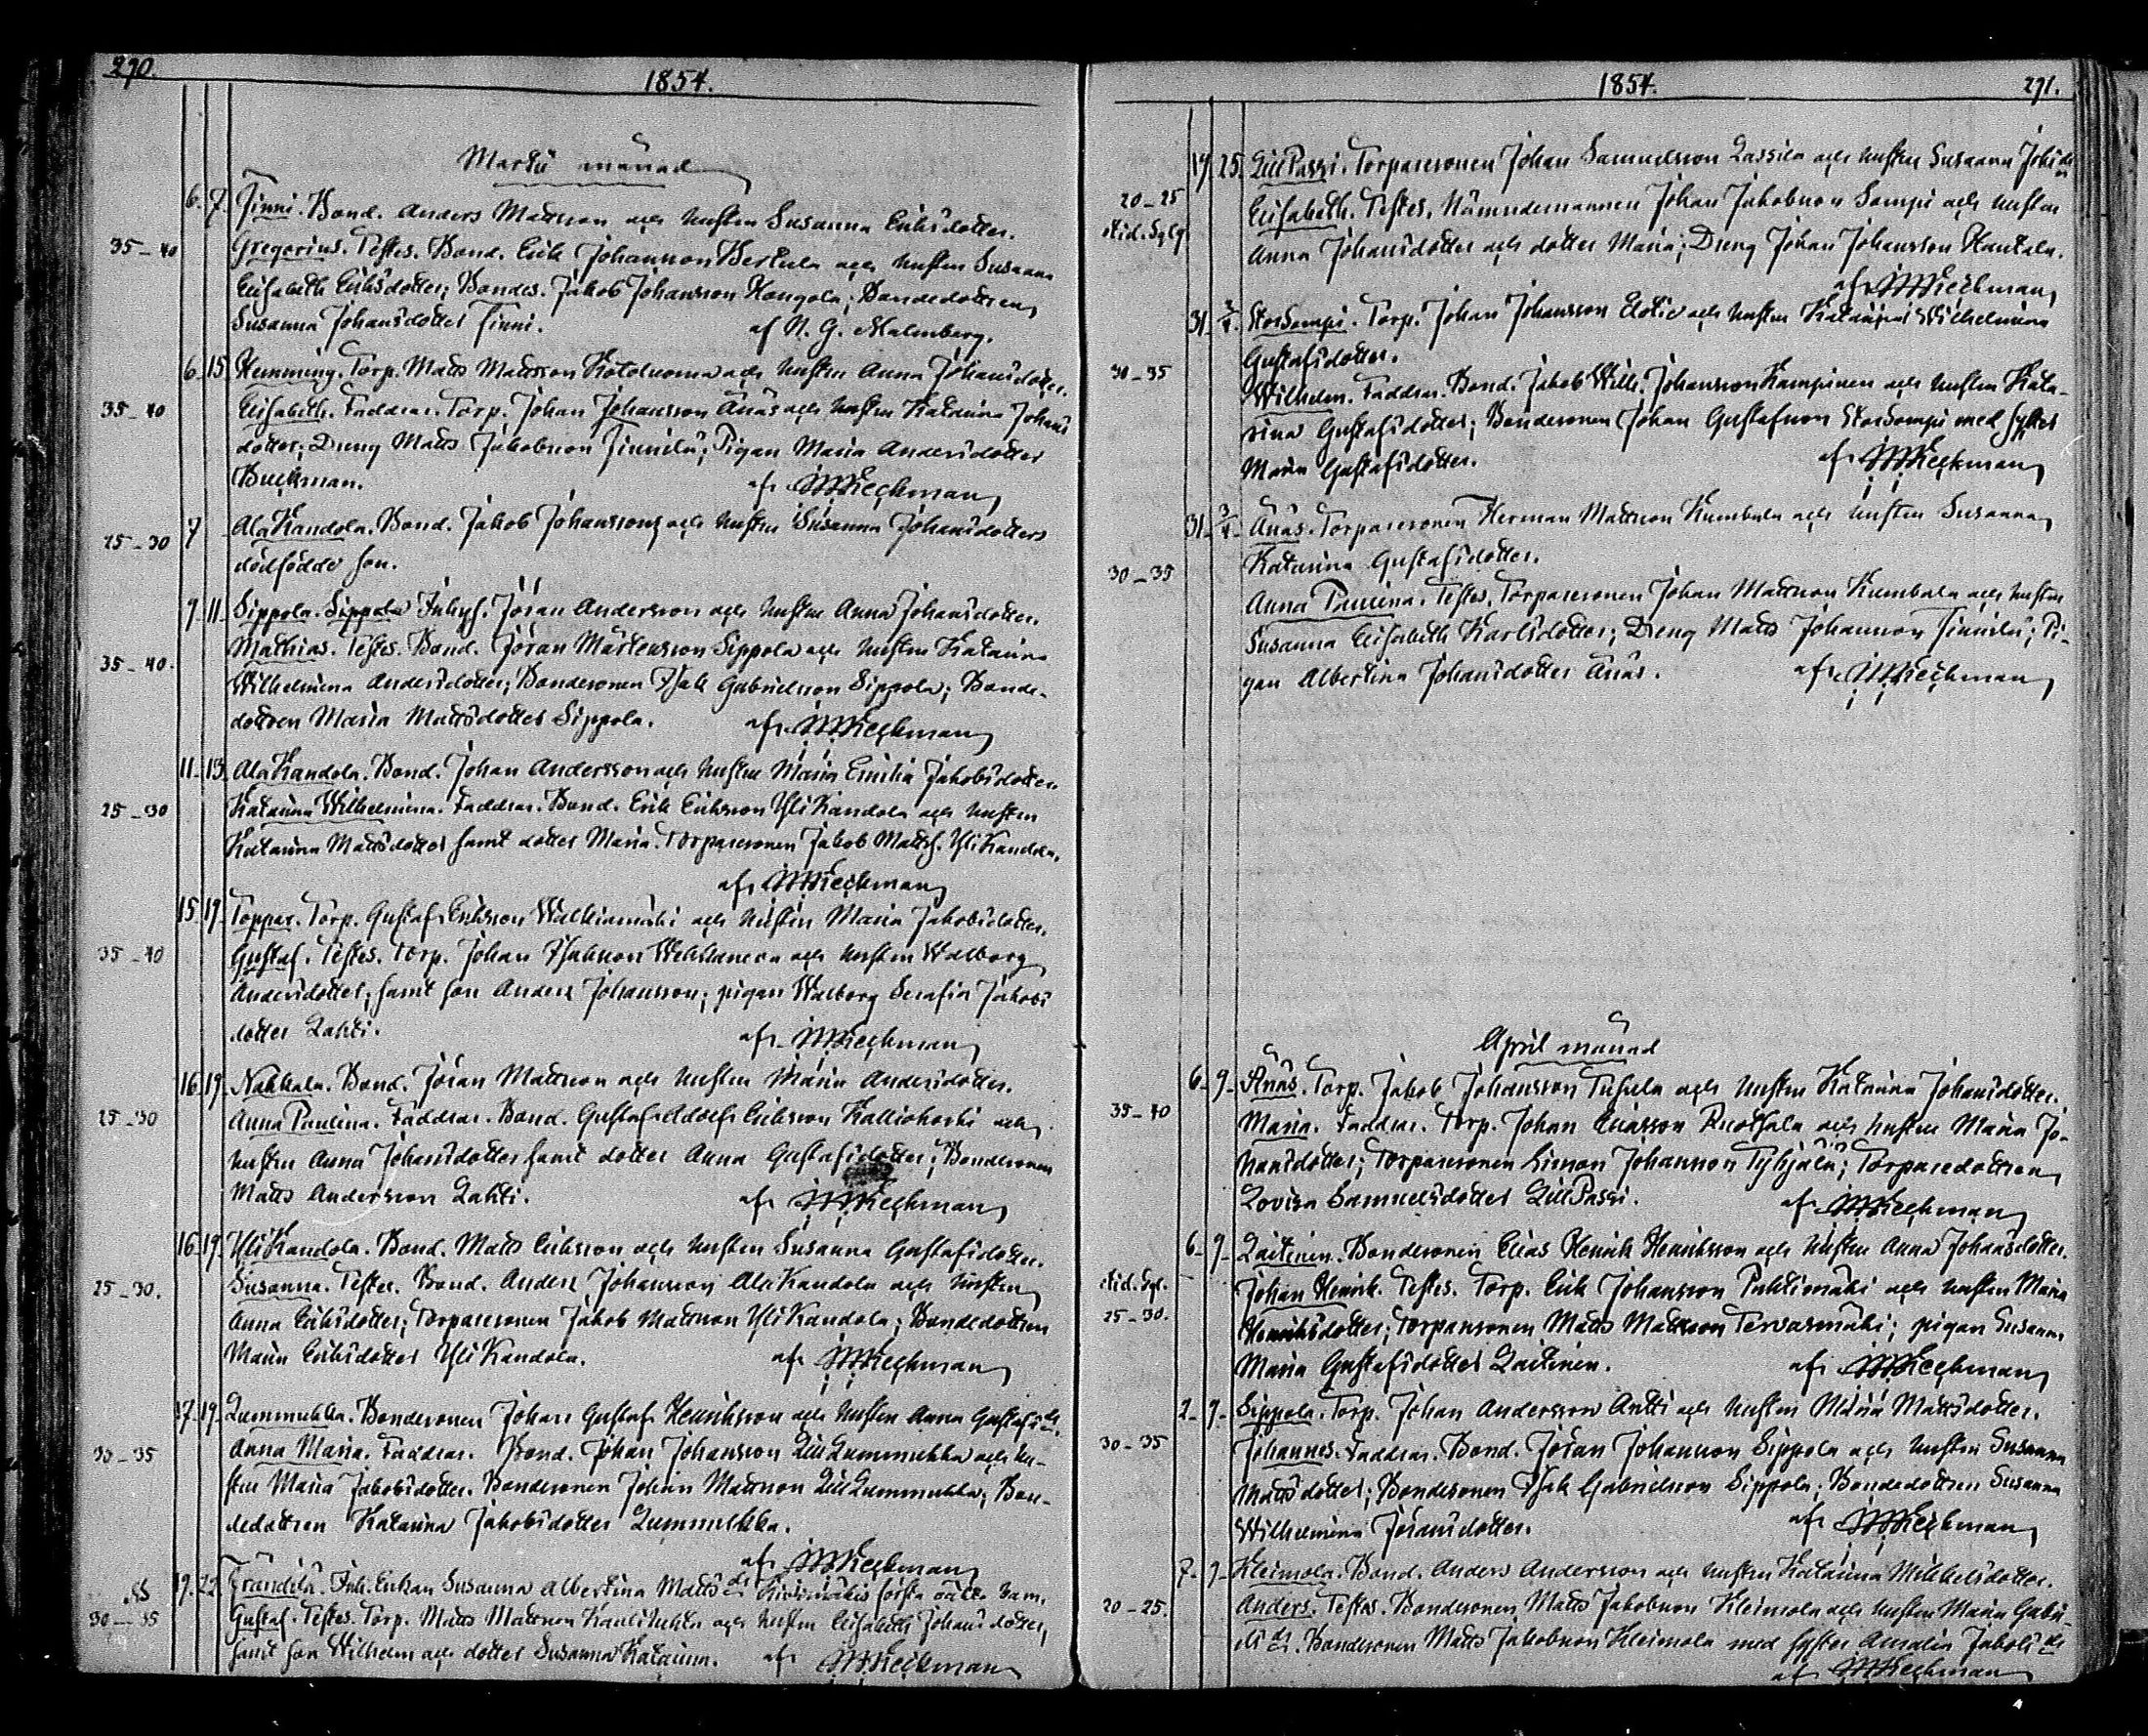 290.
1854.
Martii månad
6. 7. Finni. Bond. Anders Mattsson och hustru Susanna Eriksdotter.
35-40 Gregorius. Testes. Bond. Erik Johansson Bertula och hustru Susanna
Elisabeth Eriksdotter; Bondes. Jakob Johansson Hongola; Bondedottren
Susanna Johansdotter Finni. af N. G. Malmberg.
6. 15. Hemming. Torp. Matts Mattsson Kotoluoma och hustru Anna Johansdotter.
35-40 Elisabeth. Faddrar. Torp. Johan Johansson Änäs och hustru Katarina Johans
dotter; Dreng Matts Jakobsson Finnilä; Pigan Maria Andersdotter
Buckman. af
7 AlaKandola. Bond. Jakob Johanssons och hustru Susanna Johansdotters
25-30 dödfödde son.
9. 11. Sippola. Sippola Inhys. Jöran Andersson och hustru Anna Johansdotter.
35-40. Mathias. Testes. Bond. Jöran Mårtensson Sippola och hustru Katarina
Wilhelmina Andersdotter; Bondesonen Isak Gabrielsson Sippola; Bonde-
dottren Maria Mattsdotter Sippola. af
11. 13. AlaKandola. Bond. Johan Andersson och hustru Maria Emilia Jakobsdotter.
25-30 Katarina Wilhelmina. Faddrar. Bond. Erik Eriksson YliKandola och hustru
Katarina Mattsdotter samt dotter Maria. Torparesonen Jakob Mattss. YliKandola.
af
15. 19. Toppar. Torp. Gustaf Eriksson Walkiamäki och hustru Maria Jakobsdotter.
35-40 Gustaf. Testes. Torp. Johan Isaksson och hustru Walborg
Andersdotter, samt son Anders Johansson; pigan Walborg Serafia Jakobs
dotter Lahti. af
16. 19. Nahkala. Bond. Jöran Mattsson och hustru Maria Andersdotter.
25-30 Anna Paulina. Faddrar. Bond. Gustaf Adolf Eriksson Kalliokoski och
hustru Anna Johansdotter samt dotter Anna Gustafsdotter; Bondesonen
Matts Andersson Lahti. af
16. 19. YliKandola. Bond. Matts Eriksson och hustru Susanna Gustafsdotter.
25-30. Susanna. Testes. Bond. Anders Johansson AlaKandola och hustru
Anna Eriksdotter; Torparesonen Jakob Mattsson YliKandola; Bondedottren
Maria Eriksdotter YliKandola. af
17. 19. Lummukka. Bondesonen Johan Gustaf Henriksson och hustru Anna Gustafsdr.
30-35 Anna Maria. Faddrar. Bond. Johan Johansson LillLummukka och hu-
stru Maria Jakobsdotter. Bondesonen Johan Mattsson LillLummukka; Bon-
dedottren Katarina Jakobsdotter Lummukka.
af
19. 22. Frändilä. Inh. Enkan Susanna Albertina Mattsdr första oäkta barn.
30-35 Gustaf. Testes. Torp. Matts Mattsson och hustru Elisabeth Johansdotter,
samt son Wilhelm och dotter Susanna Katarina. af
1854.
291.
19. 25. LillPassi. Torparesonen Johan Samuelsson Lassila och hustru Susanna Johsdr
20-25 Elisabeth. Testes. Nämndemannen Johan Jakobsson Sompi och hustru
Anna Johansdotter och dotter Maria; Dreng Johan Johansson Hautala.
af
31. 2/4. StorSompi. Torp. Johan Johansson och hustru Katarina Wilhelmina
Gustafsdotter.
30-35 Wilhelm. Faddrar. Bond. Jakob Wilh. Johansson Kampinen och hustru Kata-
rina Gustafsdotter; Bondesonen Johan Gustafsson StorSompi med syster
Maria Gustafsdotter. af
31. 2/4. Änäs. Torparesonen Herman Mattsson Kumbula och hustru Susanna
30-35 Katarina Gustafsdotter.
Anna Paulina. Testes. Torparesonen Johan Mattsson Kumbula och hustru
Susanna Elisabeth Karlsdotter; Dreng Matts Johansson Finnilä; Pi-
gan Albertina Johansdotter Änäs. af
April månad
6. 9. Änäs. Torp. Jakob Johansson och hustru Katarina Johansdotter.
35-40 Maria. Faddrar. Torp. Johan Eliasson Ruotsala och hustru Maria Jo-
hansdotter; Torparesonen Simon Johansson; Torparedottren
Lovisa Samuelsdotter LillPassi. af
6. 9. Laitinen. Bondesonen Elias Henrik Henriksson och hustru Anna Johansdotter.
25-30. Johan Henrik. Testes. Torp. Erik Johansson Puhtimäki och hustru Maria
Henriksdotter; Torparesonen Matts Mattsson Tervasmäki; pigan Susanna
Maria Gustafsdotter Laitinen. af
2. 9. Sippola. Torp. Johan Andersson Antti och hustru Maria Mattsdotter.
30-35 Johannes. Faddrar. Bond. Jöran Johansson Sippola och hustru Susanna
Mattsdotter; Bondesonen Isak Gabrielsson Sippola; Bondedottren Susanna
Wilhelmina Jöransdotter. af
7. 9. Kleimola. Bond. Anders Andersson och hustru Katarina Mikkelsdotter.
20-25. Anders. Testes. Bondesonen Matts Jakobsson Kleimola och hustru Maria Gabri-
elsdr. Bondesonen Matts Jakobsson Kleimola med syster Amalia Jakobsdr
af